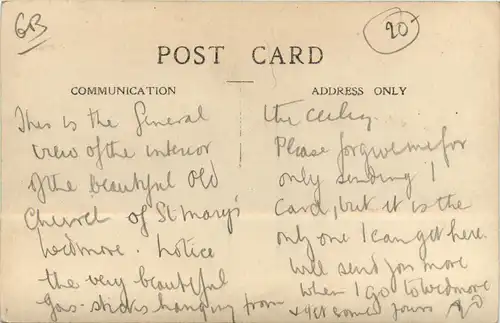 6B
20
POST CARD
COMMUNICATION
ADDRESS ONLY
This is the General
view of the interior
of the beautiful old
Church of St Mary's
Wedmore. Notice
the very beautiful
gas-sticks hanging from
the ceiling
Please forgive me for
only sending 1
Card, but it is the
only one I can get here.
Will send you more
when I go to Wedmore
& get some. Yours